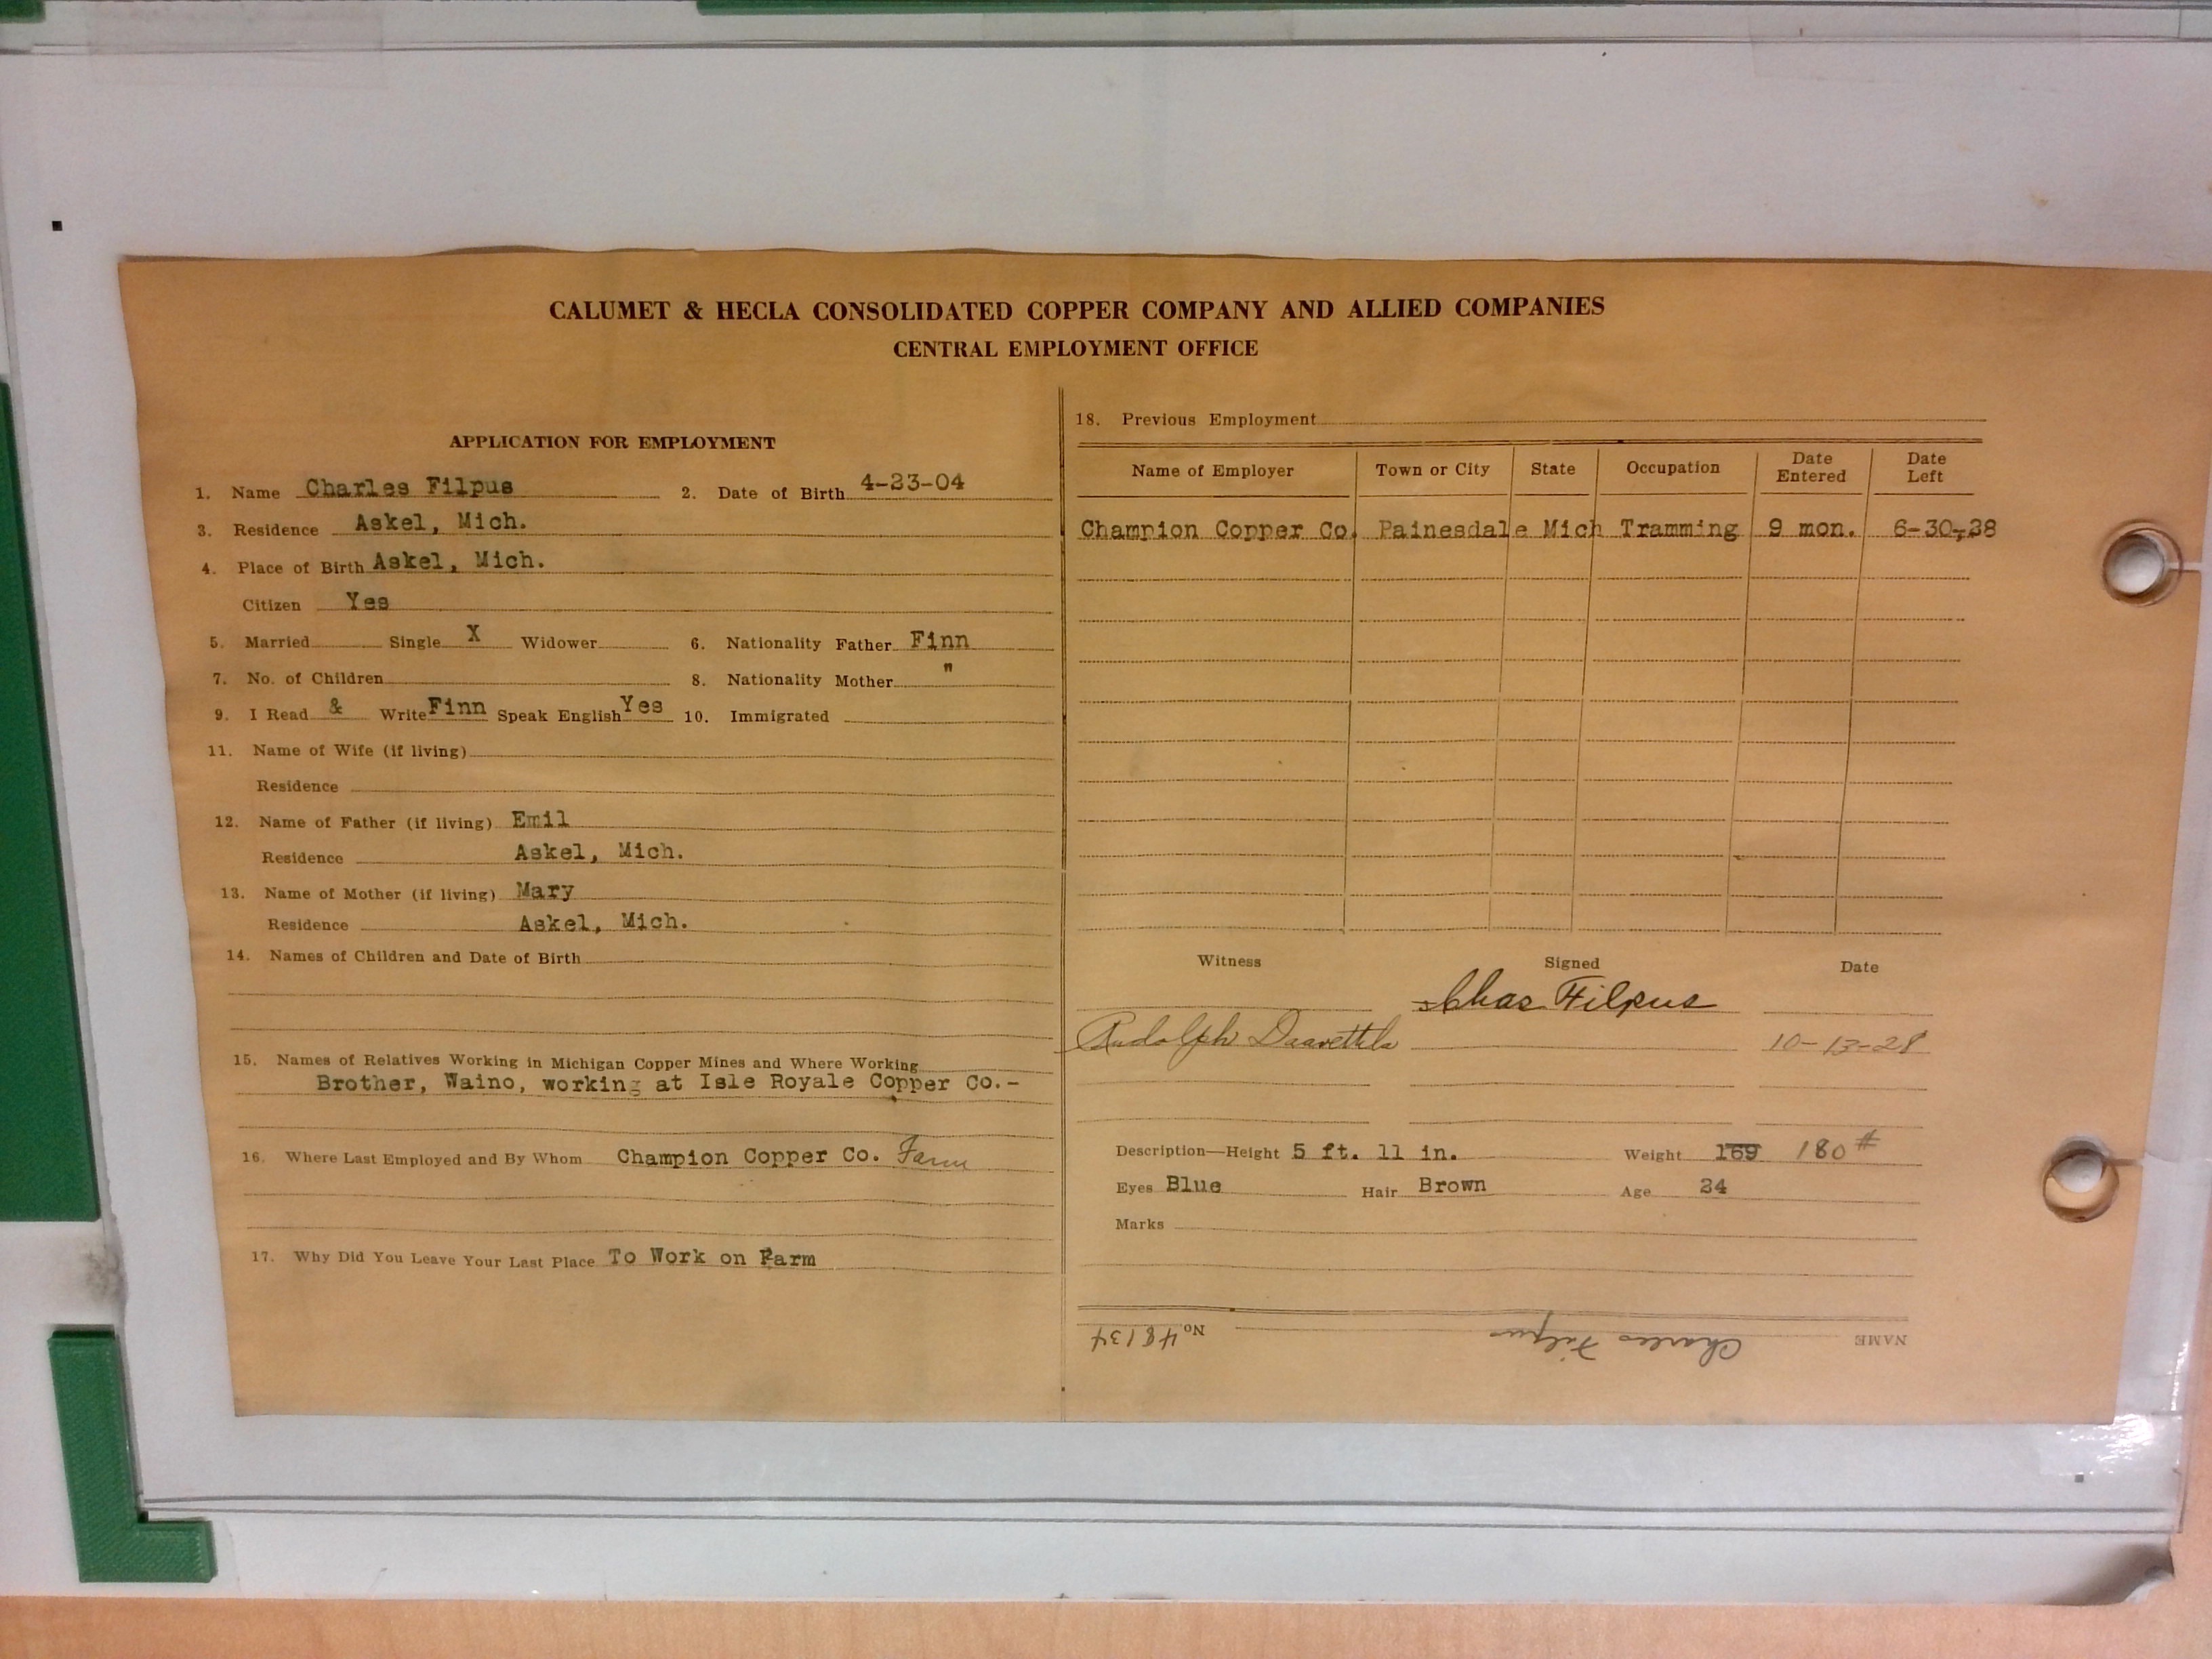 CALUMET & HECLA CONSOLIDATED COPPER COMPANY AND ALLIED COMPANIES
CENTRAL EMPLOYMENT OFFICE
APPLICATION FOR EMPLOYMENT
1. Name Charles Filpus 2. Date of Birth 4-23-04
3. Residence Askel, Mich.
4. Place of Birth Askel, Mich.
Citizen Yes
5. Married Single X Widower 6. Nationality Father Finn
7. No. of Children 8. Nationality Mother "
9. I Read & Write Finn Speak English Yes 10. Immigrated
11. Name of Wife (if living)
Residence
12. Name of Father (if living) Emil
Residence Askel, Mich.
13. Name of Mother (if living) Mary
Residence Askel, Mich.
14. Names of Children and Date of Birth
15. Names of Relatives Working in Michigan Copper Mines and Where Working
Brother, Waino, working at Isle Royale Copper Co.-
16. Where Last Employed and By Whom Champion Copper Co. Farm
17. Why Did You Leave Your Last Place To Work on Farm
18. Previous Employment
Name of Employer Town or City State Occupation Date Entered Date Left
Champion Copper Co. Painesdale Mich Tramming 9 mon. 6-30-28
Witness Signed Date
Chas Filpus
Rudolph Daavettila 10-13-28
Description—Height 5 ft. 11 in. Weight 169 180#
Eyes Blue Hair Brown Age 24
Marks
NAME Charles Filpus No 48134